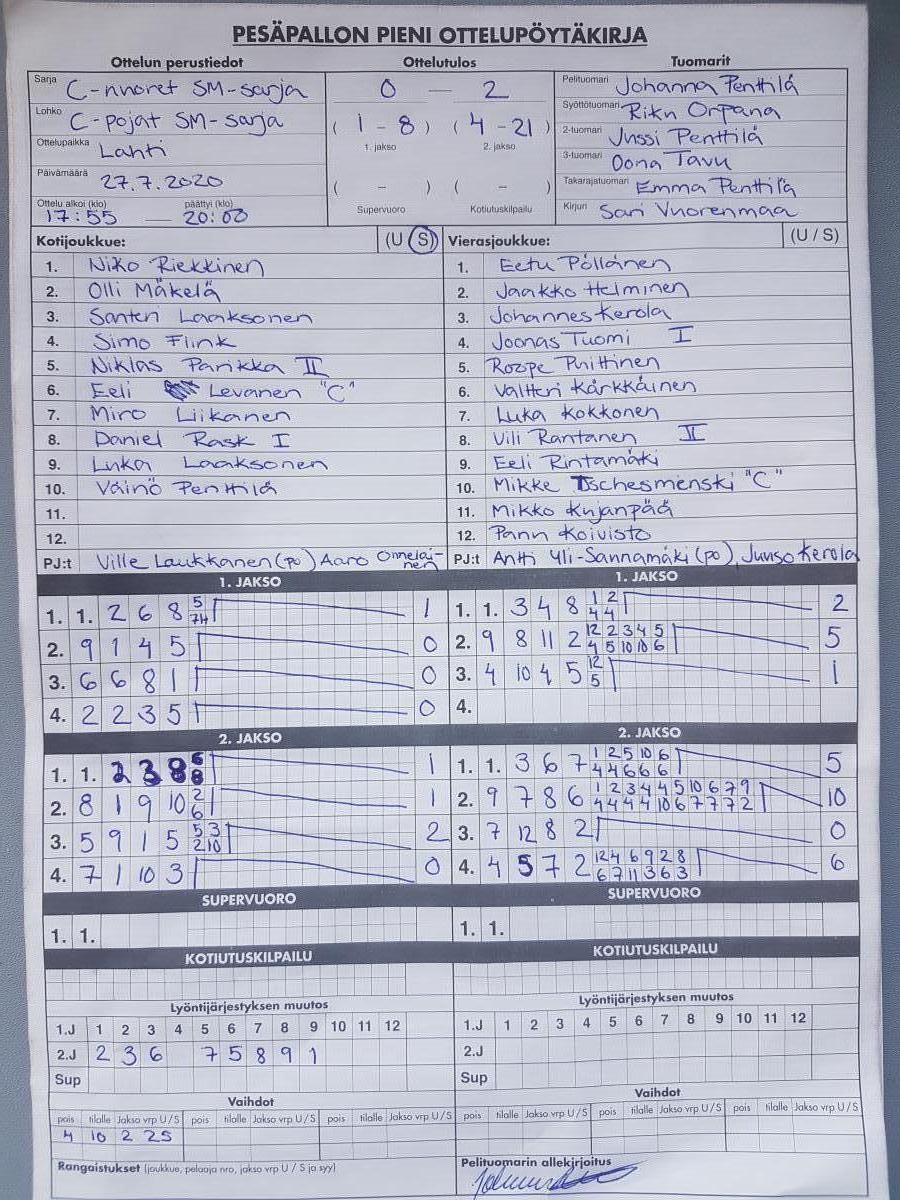 PESÄPALLON PIENI OTTELUPÖYTÄKIRJA
Ottelun perustiedot Ottelutulos Tuomarit
Sarja C-nuoret SM-sarja 0 — 2 Pelituomari Johanna Penttilä
Lohko C-pojat SM-sarja ( 1 - 8 ) ( 4 - 21 ) Syöttötuomari Riku Orpana
1. jakso 2. jakso 2-tuomari Jussi Penttilä
Ottelupaikka Lahti 3-tuomari Oona Tavu
Päivämäärä 27.7.2020 ( - ) ( - ) Takarajatuomari Emma Penttilä
Ottelu alkoi (klo) päättyi (klo) Supervuoro Kotiutuskilpailu Kirjuri Sari Vuorenmaa
17:55 —
Kotijoukkue: (U / S) Vierasjoukkue: (U / S)
1. Niko Riekkinen 1. Eetu Pöllänen
2. Olli Mäkelä 2. Jaakko Helminen
3. Santeri Laaksonen 3. Johannes Kerola
4. Simo Flink 4. Joonas Tuomi I
5. Niklas Parikka II 5. Roope Puittinen
6. Eeli Levanen "C" 6. Valtteri Kärkkäinen
7. Miro Liikanen 7. Luka Kokkonen
8. Daniel Rask I 8. Vili Rantanen II
9. Luka Laaksonen 9. Eeli Rintamäki
10. Väinö Penttilä 10. Mikke Tschesmenski "C"
11. 11. Mikko Kujanpää
12. 12. Panu Koivisto
PJ:t Ville Laukkanen (po) Aaro Onnelai-nen PJ:t Antti Yli-Sannamäki (po), Juuso Kerola
1. JAKSO 1. JAKSO
1. 1. 2 6 8 5 1 1. 1. 3 4 8 1 2 2
4 4
2. 9 1 4 5 0 2. 9 8 11 2 12 2 3 4 5 5
4 5 10 10 6
3. 6 6 8 1 0 3. 4 10 4 5 12 1
5
4. 2 2 3 5 0 4.
2. JAKSO 2. JAKSO
1. 1. 2 3 8 6 1 1. 1. 3 6 7 1 2 5 10 6 5
8 4 4 6 6 6
2. 8 1 9 10 2 1 2. 9 7 8 6 1 2 3 4 4 5 10 6 7 9 10
6 4 4 4 4 10 6 7 7 7 2
3. 5 9 1 5 5 3 2 3. 7 12 8 2 0
2 10
4. 7 1 10 3 0 4. 4 5 7 2 12 4 6 9 2 8 6
6 7 11 3 6 3
SUPERVUORO SUPERVUORO
1. 1. 1. 1.
KOTIUTUSKILPAILU KOTIUTUSKILPAILU
Lyöntijärjestyksen muutos Lyöntijärjestyksen muutos
1.J 1 2 3 4 5 6 7 8 9 10 11 12 1.J 1 2 3 4 5 6 7 8 9 10 11 12
2.J 2 3 6 7 5 8 9 1 2.J
Sup Sup
Vaihdot Vaihdot
pois tilalle Jakso vrp U/S pois tilalle Jakso vrp U/S pois tilalle Jakso vrp U/S pois tilalle Jakso vrp U/S pois tilalle Jakso vrp U/S pois tilalle Jakso vrp U/S
4 10 2 2S
Rangaistukset (joukkue, pelaaja nro, jakso vrp U / S ja syy) Pelituomarin allekirjoitus